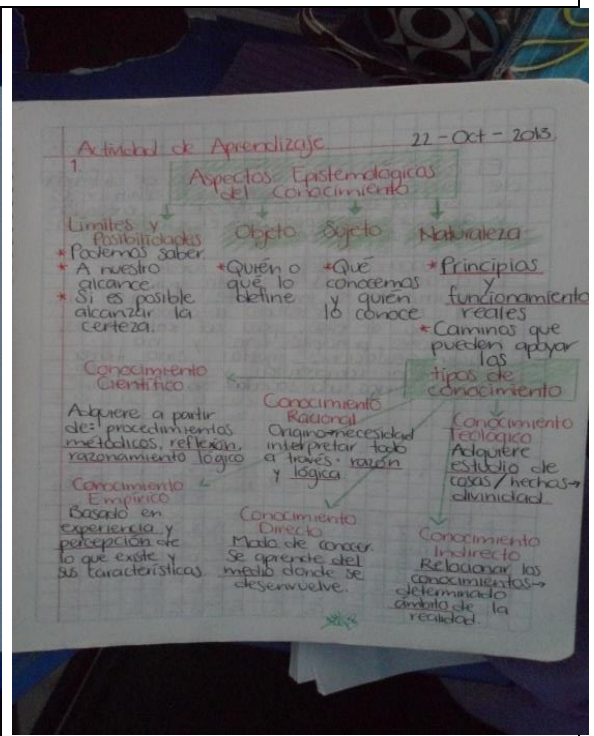 Actividad de Aprendizaje
22-Oct-2013
1.
Aspectos Epistemológicos
del Conocimiento
Límites y
Posibilidades
* Podemos saber
* A nuestro
alcance.
* Si es posible
alcanzar la
certeza.
Objeto
* Quién o
qué lo
define
Sujeto
* Qué
conocemos
y quien
lo conoce
Naturaleza
* Principios
y
funcionamiento
reales
* Caminos que
pueden apoyar
los
tipos de
conocimiento
Conocimiento
Científico
Adquiere a partir
de: procedimientos
metódicos, reflexión,
razonamiento lógico
Conocimiento
Racional
Origina→necesidad
interpretar todo
a través: razón
y lógica
Conocimiento
Teológico
Adquiere
estudio de
cosas/hechos→
divinidad.
Conocimiento
Empírico
Basado en
experiencia y
percepción de
lo que existe y
sus características.
Conocimiento
Directo
Modo de conocer
se aprende del
medio donde se
desenvuelve.
Conocimiento
Indirecto
Relacionar los
conocimientos→
determinado
ámbito de la
realidad.